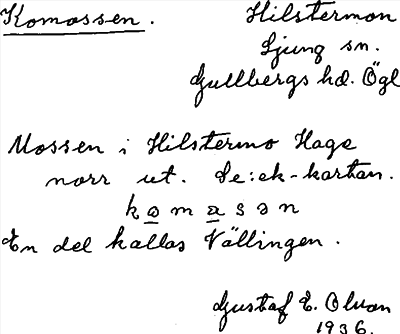 Komossen. Hilstermon
Ljung sn.
Gullbergs hd. Ögl
Mossen i Hilstermo Hage
norr ut. Se: ek-kartan.
k o m a s ə n
En del kallas Vällingen.
Gustaf E. Olson
1936.